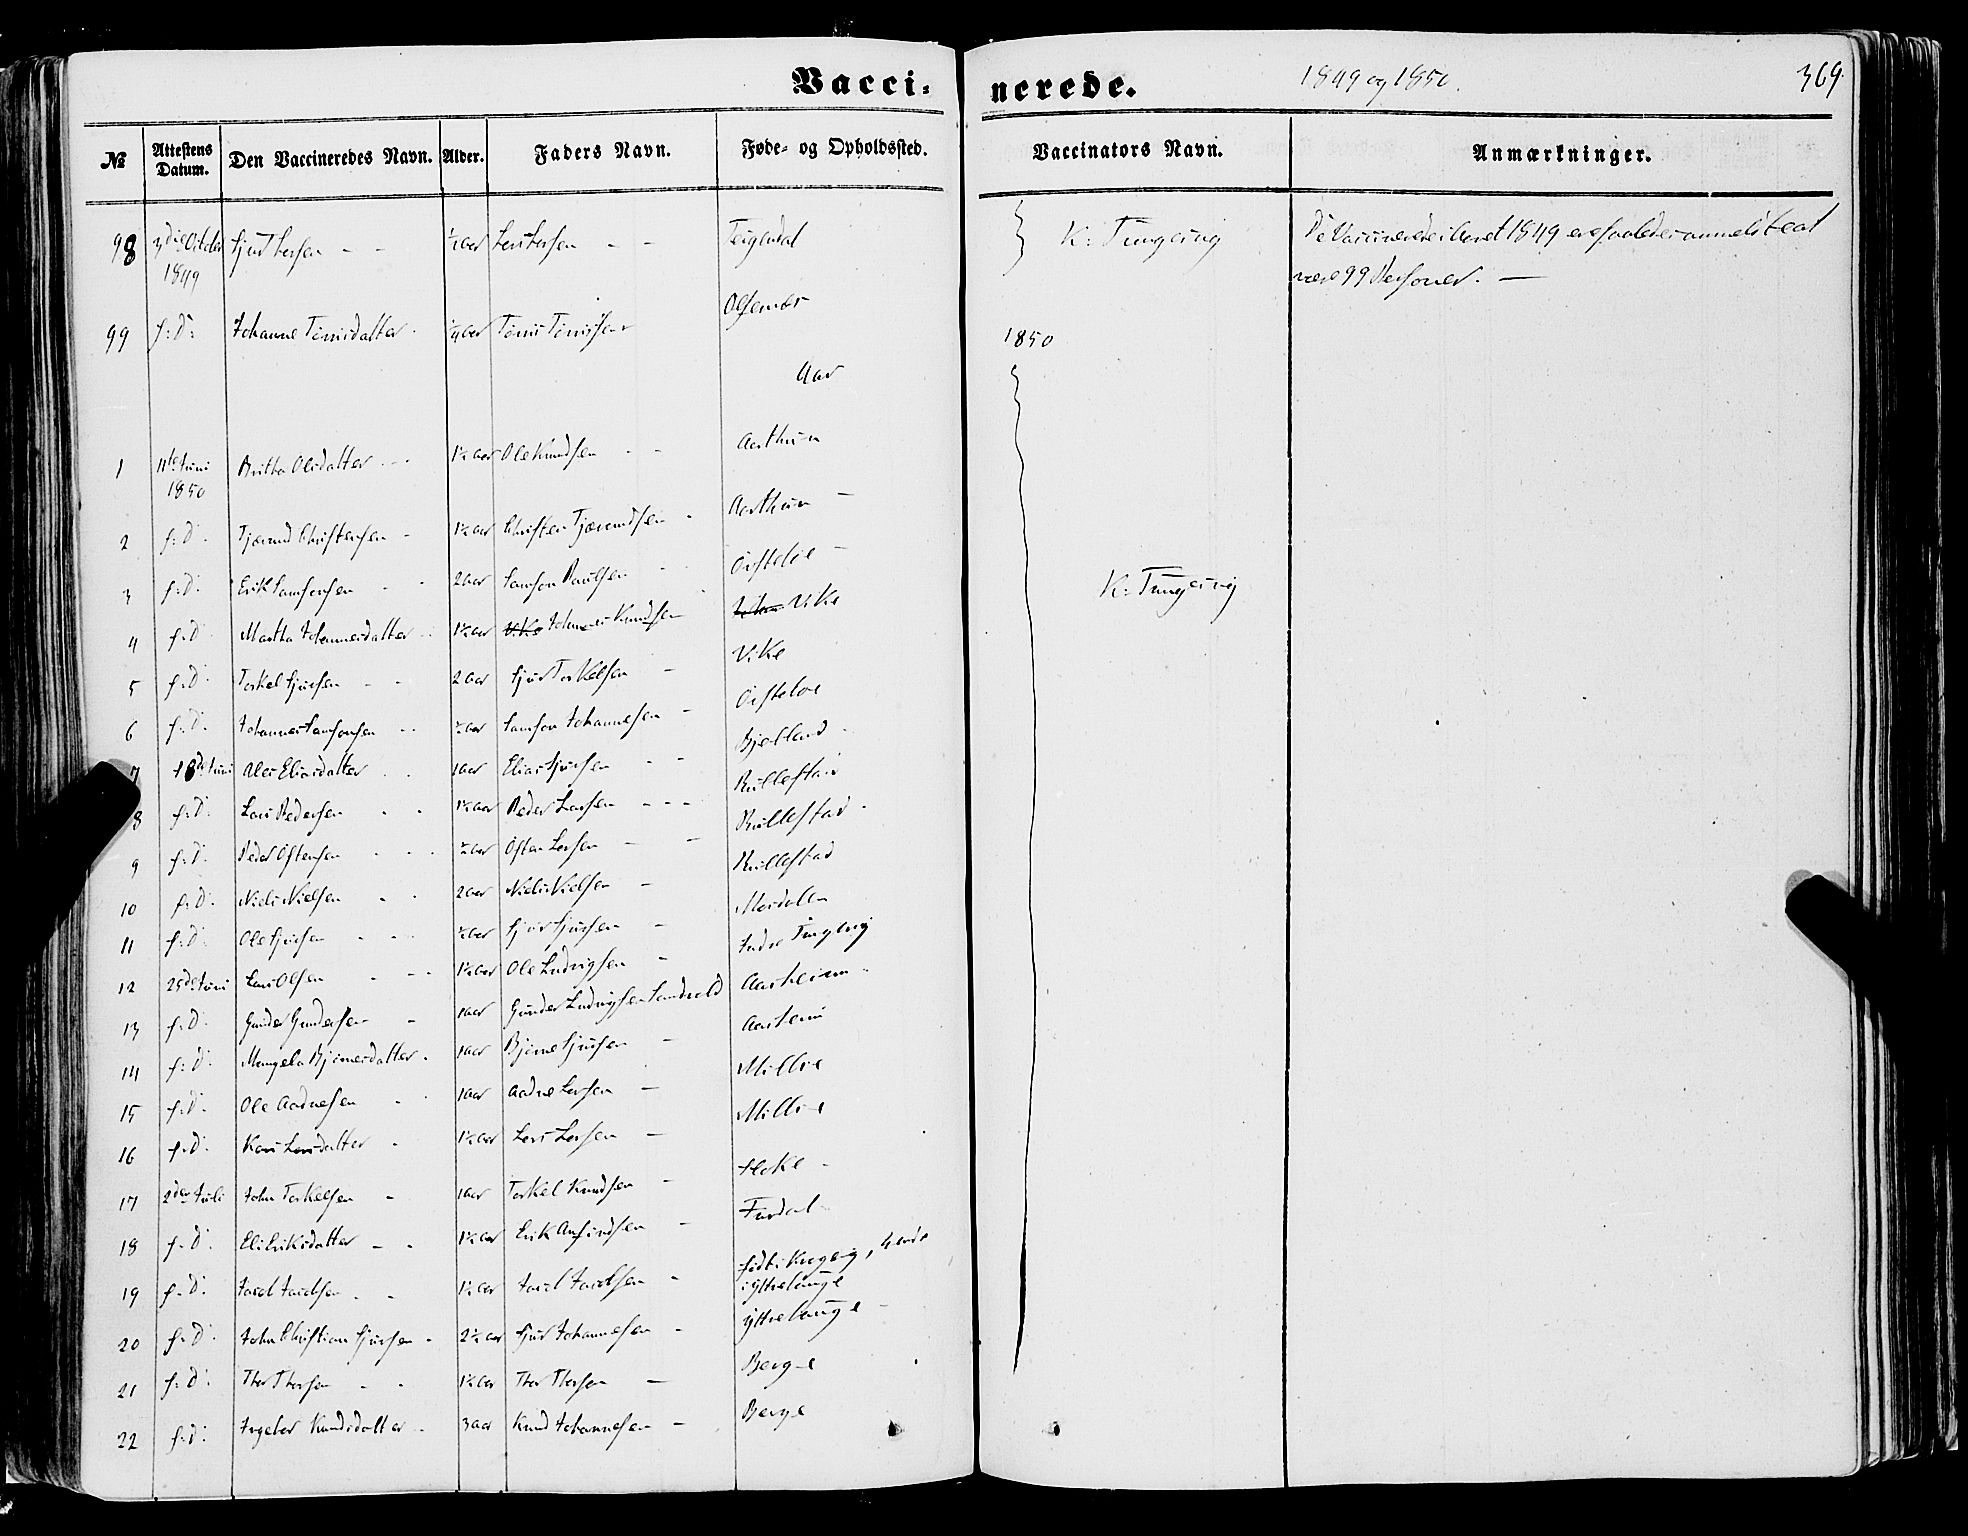 Vacci=
nerede.
1849 og 1850.
369.
№ Attestens Datum. Den Vaccineredes Navn. Alder. Faders Navn. Føde- og Opholdssted. Vaccinators Navn. Anmærkninger.
98 3die October 1849 Sjur Larsen - - ½ aar Lars Larsen - - Teigendal K: Tungesvig De Vaccinerede i Aaret 1849 ere saaledes anmeldt at
være 99 Personer. —
99 s: D: Johanne Tønnisdatter ¼ aar Tønnis Tønnissen Ølfernæs
1850
Aar
1 11te Juni 1850 Britha Olesdatter - - 1½ aar Ole Knudsen - - Aarthun
2 s: D: Tjærand Christensen - 1½ aar Christen Tjærandsen - Aarthun -
3 s: D: Erik Samsonsen - - 2 aar Samson Paulsen - Østeløe - K: Tungesvig
4 s: D: Martha Johannesdatter 1½ aar Vike Johannes Knudsen Vike
5 s: D: Torkel Sjursen - - 2 aar Sjur Torkelsen - Vike
6 s: D: Johannes Samsonsen - - ½ aar Samson Johannesen - Østeløe
7 18de Juni Ales Eliasdatter - - 1 aar Elias Sjursen - - Bjelland
8 s: D: Lars Pedersen - - 1½ aar Peder Larsen - - - Rullestad
9 s: D: Peder Østensen - - - ½ aar Østen Larsen - - Rullestad -
10 s: D: Niels Nielsen - - 2 aar Niels Nielsen - Rullestad
11 s: D: Ole Sjursen - - - ½ aar Sjur Sjursen - Mosdalen
12 25de Juni Lars Olsen - - - 1½ aar Ole Ludvigsen - Indre Tungesvig
13 s: D: Gunder Gundersen - 1 aar Gunder Ludvigsen Sandvold Aarheim
14 s: D: Mangela Bjørnesdatter - 1 aar Bjørne Sjursen -
15 s: D: Ole Aadnesen - - 1 aar Aadne Larsen - Millie
16 s: D: Kari Larsdatter - 1½ aar Lars Larsen - Millie
17 2den Juli John Torkelsen - 1 aar Torkel Knudsen - Hoke -
18 s: D: Eli Eriksdatter - - 1½ aar Erik Amfindsen - Fardal
19 s: D: - - 1½ aar - født i
i Ytrelauge
20 s: D: John Christian Sjursen - 2½ aar Sjur Johannesen - Ytrelauge -
21 s: D: Thor Thorsen - - 1½ aar Thor Thorsen - Berge
22 s: D: Ingebor Knudsdatter - 3 aar Knud Johannesen - Berge